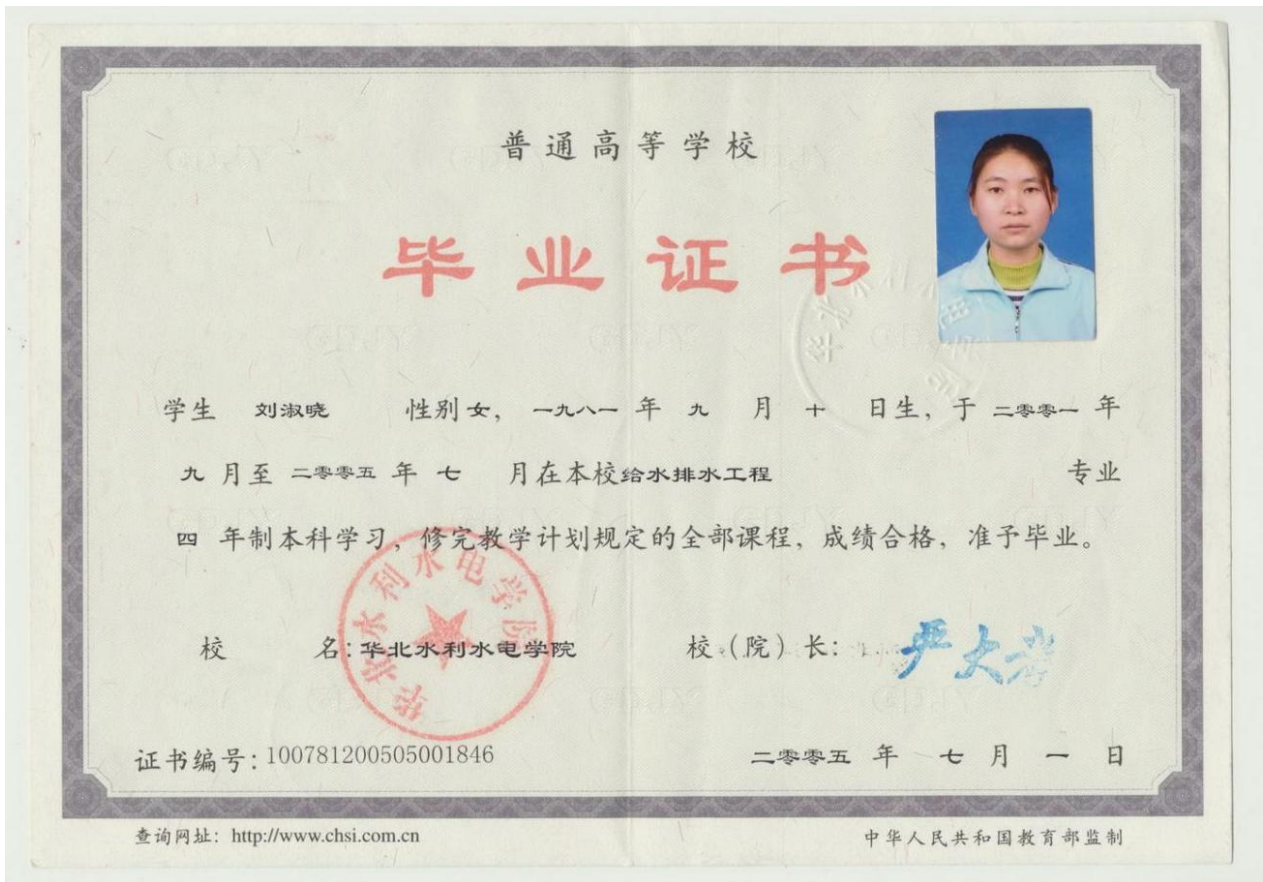 普通高等学校
毕业证书
学生 刘淑晓 性别 女， 一九八一 年 九 月 十 日生，于 二零零一 年
九 月至 二零零五 年 七 月在本校 给水排水工程 专业
四 年制本科学习，修完教学计划规定的全部课程，成绩合格，准予毕业。
华北水利水电学院
校 名：华北水利水电学院 校（院）长：严大考
证书编号：100781200505001846 二零零五 年 七 月 一 日
查询网址：http://www.chsi.com.cn 中华人民共和国教育部监制